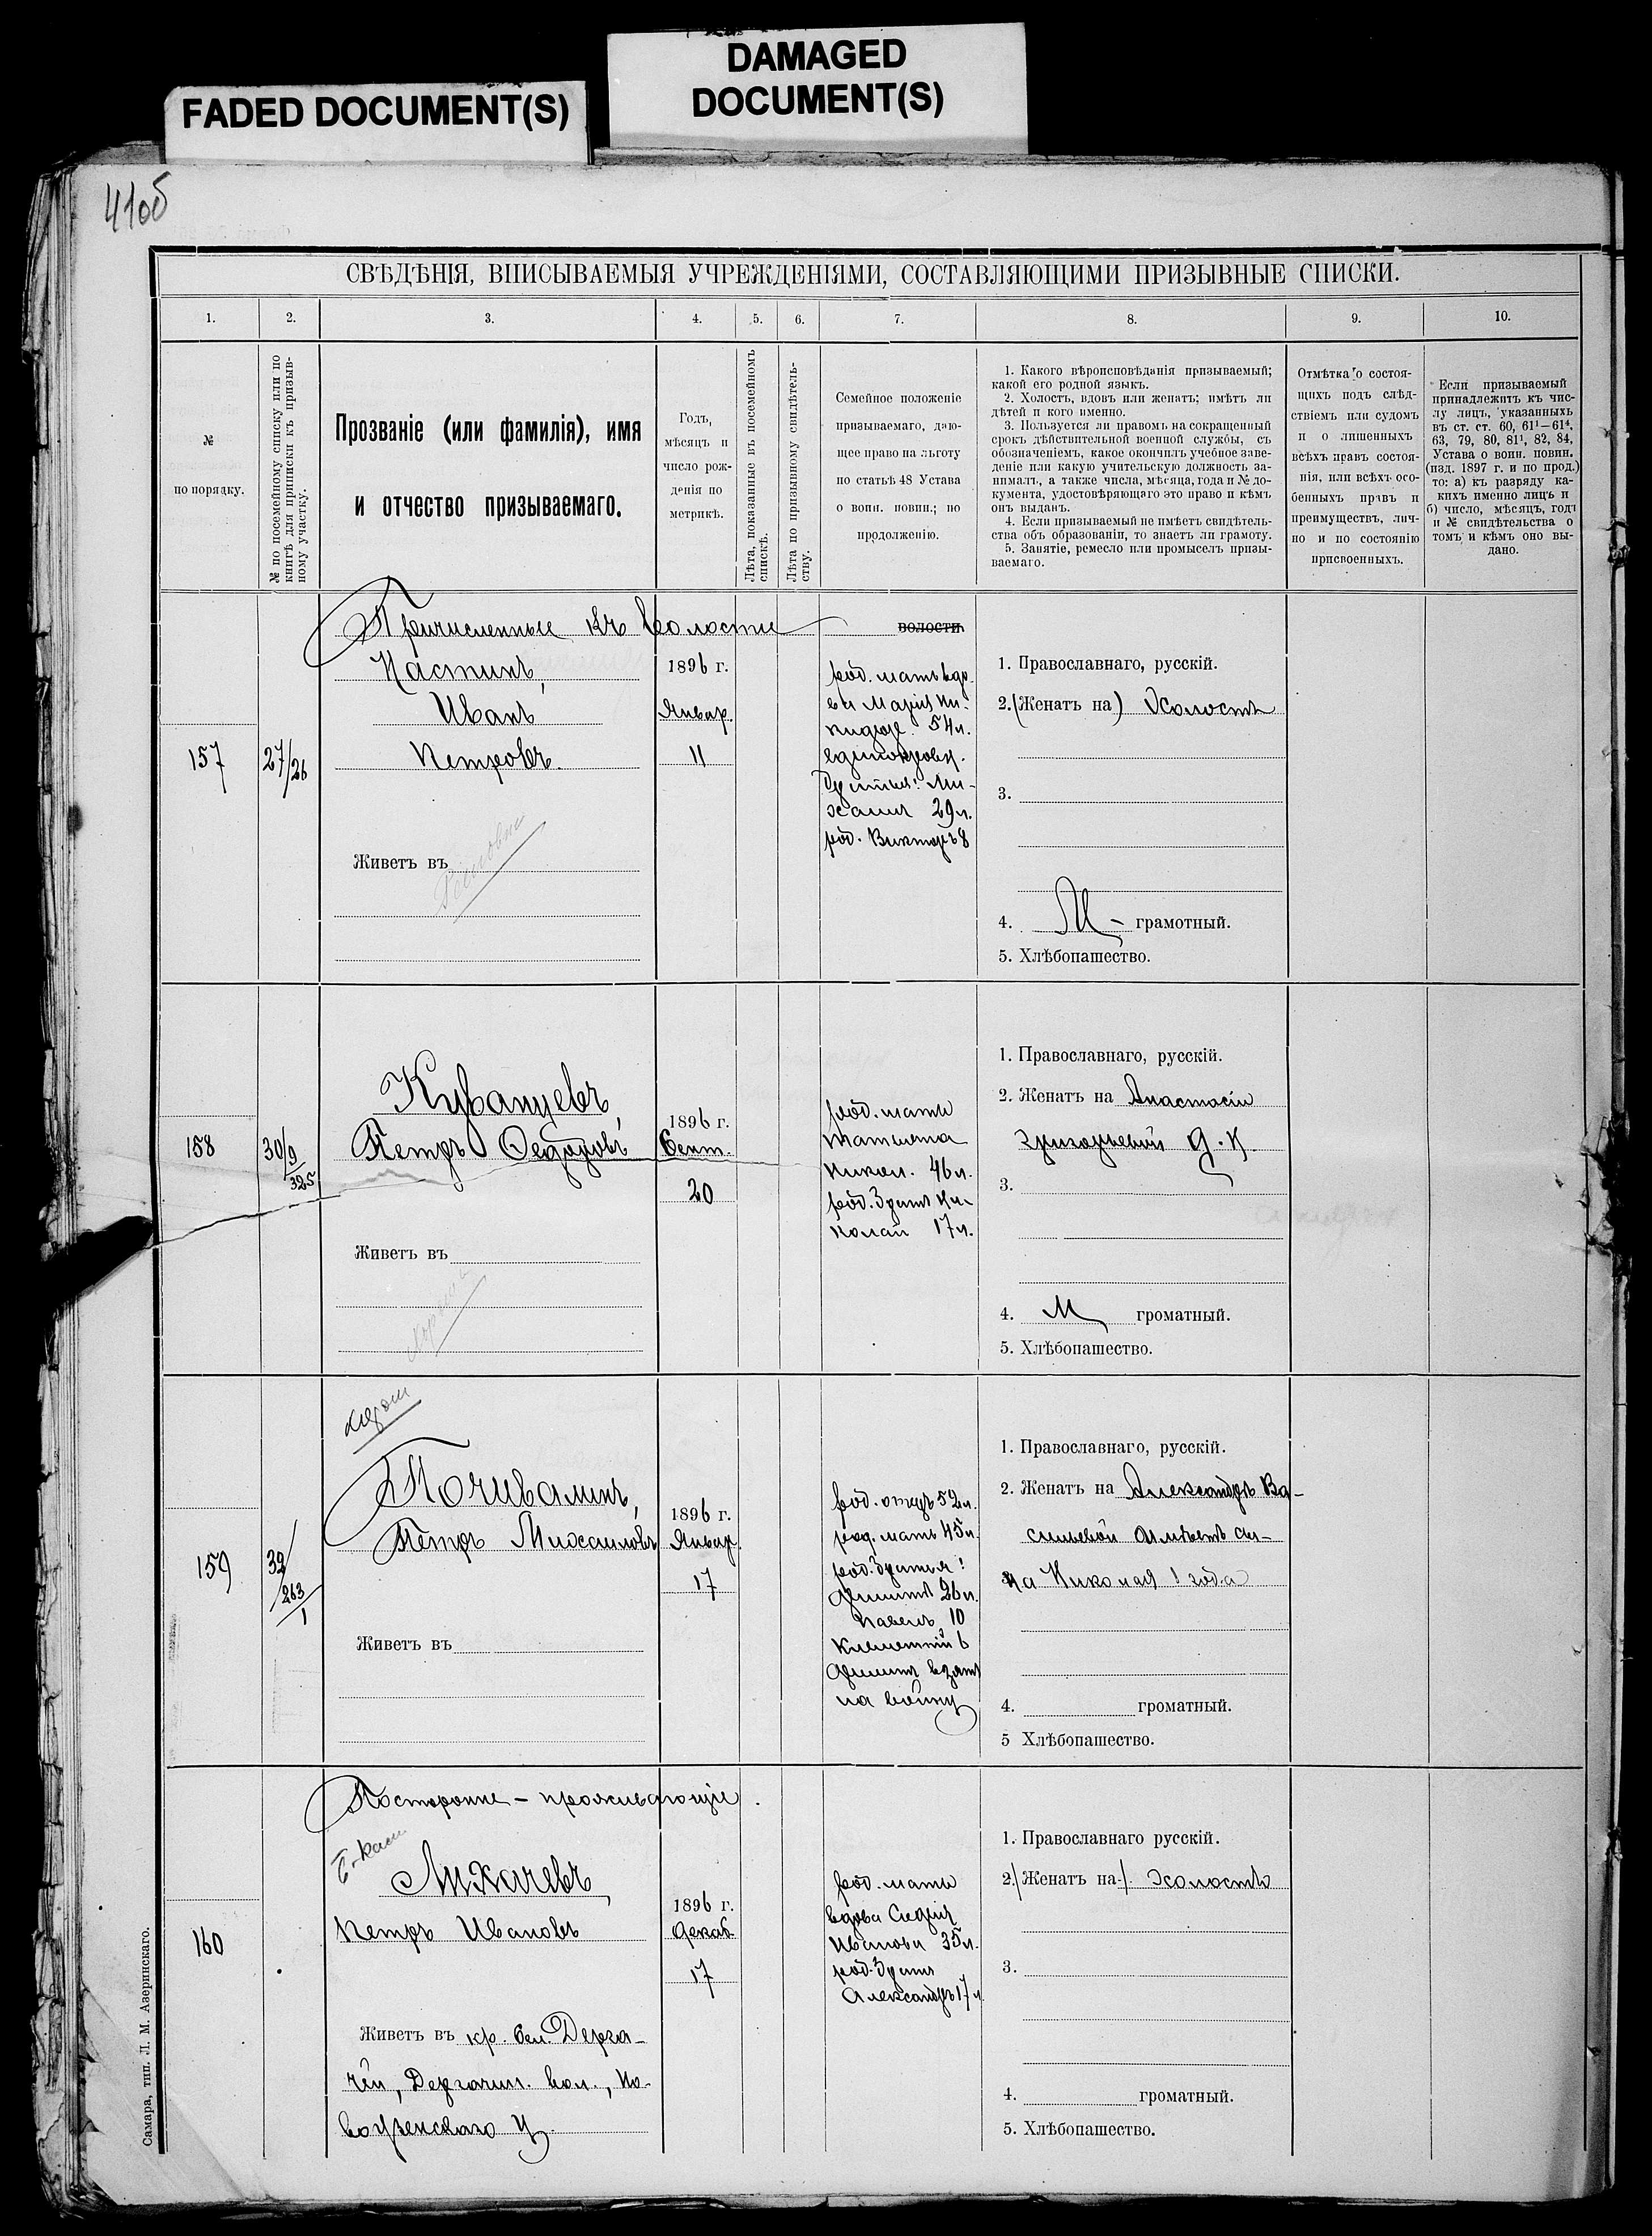 DAMAGED
DOCUMENT(S)
FADED DOCUMENT(S)
41об
СВѢДѢНІЯ, ВПИСЫВАЕМЫЯ УЧРЕЖДЕНІЯМИ, СОСТАВЛЯЮЩИМИ ПРИЗЫВНЫЕ СПИСКИ.
1.
2.
3.
4.
5.
6.
7.
8.
9.
10.
№
по порядку.
№ по посемейному списку или по
книгѣ для приписки къ призыв-
ному участку.
Прозваніе (или фамилія), имя
и отчество призываемаго.
Годъ,
мѣсяцъ и
число рож-
денія по
метрикѣ.
Лѣта, показанные въ посемейномъ
спискѣ.
Лѣта по призывному свидѣтель-
ству.
Семейное положеніе
призываемаго, даю-
щее право на льготу
по статьѣ 48 Устава
о воин. повин.; по
продолженію.
1. Какого вѣроисповѣданія призываемый;
какой его родной языкъ.
2. Холостъ, вдовъ или женатъ; имѣтъ ли
дѣтей и кого именно.
3. Пользуется ли правомъ на сокращенный
срокъ дѣйствительной военной службы, съ
обозначеніемъ, какое окончилъ учебное заве-
деніе или какую учительскую должность за-
нималъ, а также числа, мѣсяца, года и № до-
кумента, удостовѣряющаго это право и кѣмъ
онъ выданъ.
4. Если призываемый не имѣетъ свидѣтель-
ства объ образованіи, то знаетъ ли грамоту.
5. Занятіе, ремесло или промыселъ призы-
ваемаго.
Отмѣтка о состоя-
щихъ подъ слѣд-
ствіемъ или судомъ
и о лишенныхъ
всѣхъ правъ состоя-
нія, или всѣхъ осо-
бенныхъ правъ и
преимуществъ, лич-
но и по состоянію
присвоенныхъ.
Если призываемый
принадлежитъ къ чис-
лу лицъ, указанныхъ
въ ст. ст. 60, 61¹—61⁴,
63, 79, 80, 81¹, 82, 84,
Устава о воин. повин.
(изд. 1897 г. и по прод.)
то: а) къ разряду ка-
кихъ именно лицъ и
б) число, мѣсяцъ, годъ
и № свидѣтельства о
томъ и кѣмъ оно вы-
дано.
Причисленные къ волости
волости
157
27/26
Иванъ
Петровъ.
Живетъ въ
1896 г.
Январ.
11
род. мать вдо-
ва Марія Ни-
54 л.
братья: Ми-
хаилъ 29 л.
род. Викторъ 8
1. Православнаго, русскій.
2. (Женатъ на) Холостъ
3.
4. М - грамотный.
5. Хлѣбопашество.
158
30/9
325
Куванцевъ,
Петръ Федоровъ
Живетъ въ
1896 г.
Сент.
20
род. мать
Матрена
Никол. 46 л.
род. братъ Ни-
колай 17 л.
1. Православнаго, русскій.
2. Женатъ на Анастасіи
Григорьевой Д. Н.
3.
4. М громатный.
5. Хлѣбопашество.
159
32/263
1
Почивалинъ,
Петръ Михаиловъ
Живетъ въ
1896 г.
Январ.
17
род. отецъ 52 л.
род. мать 45 л.
род. братья:
26 л.
Павелъ 10
6
взятъ
на войну
1. Православнаго, русскій.
2. Женатъ на Александрѣ Ва-
сильевой имѣетъ сы-
на Николая 1 года
4. громатный.
5 Хлѣбопашество.
Посторонне-проживающіе.
160
Лихачевъ,
Петръ Ивановъ
Живетъ въ кр. сел. Дерга-
чей, Дергачин. вол., Но-
воузенскаго у.
1896 г.
Декаб.
17
род. мать
вдова
Иванова 35 л.
род. братъ
Александръ 17 л.
1. Православнаго русскій.
2. (Женатъ на). Холостъ
3.
4. громатный.
5. Хлѣбопашество.
Самара, тип. Л. М. Азеринскаго.